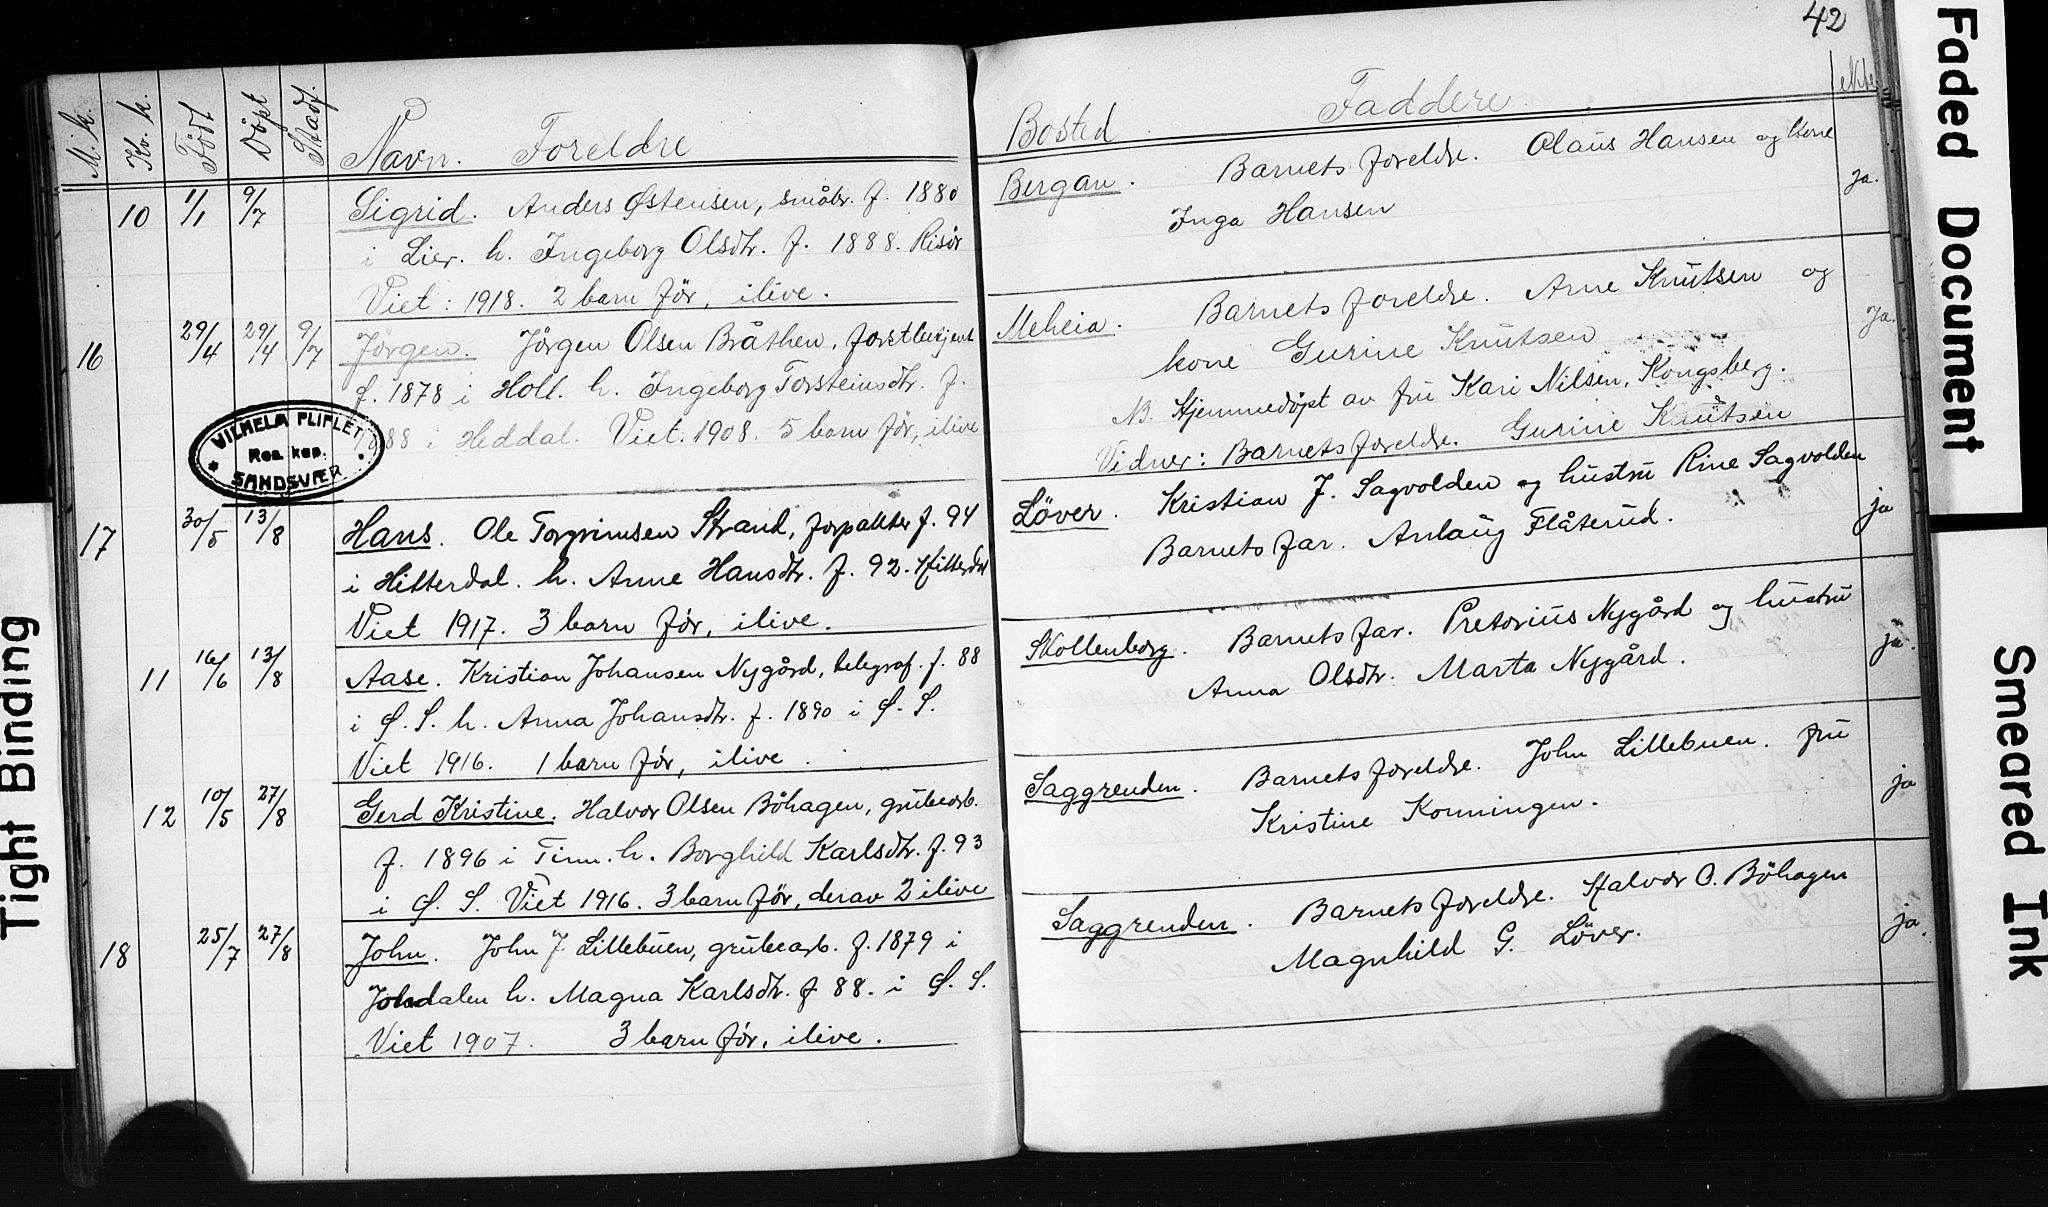 42
M. k. Kv. k. Född Döpt Stadf. Navn. Foreldre
10 1/1 9/7 Sigrid. Anders Østensen, småbr. f. 1880
i Lier. h. Ingeborg Olsdtr. f. 1888. Risör
Viet: 1918. 2 barn för, ilive.
16 29/4 29/4 9/7 Jörgen. Jörgen Olsen Bråthen, forstbetjent
f. 1878 i Holt. h. Ingeborg Torsteinsdtr. f.
1888 i Heddal. Viet. 1908. 5 barn för, ilive
VILHELM FLIFLET
Res. kap.
SANDSVÆR
17 30/5 13/8 Hans. Ole Torgrimsen Strand, forpakter f. 94
i Hitterdal. h. Anne Hansdtr. f. 92. Hitterdal
Viet 1917. 3 barn för, ilive.
11 16/6 13/8 Aase. Kristian Johansen Nygård, telegraf. f. 88
i Ø. S. h. Anna Johansdtr. f. 1890 i Ø. S.
Viet 1916. 1 barn för, ilive.
12 10/5 27/8 Gerd Kristine. Halvor Olsen Böhagen, grubearb.
f. 1896 i Tinn. h. Borghild Karlsdtr. f. 93
i Ø. S. Viet 1916. 3 barn för, derav 2 ilive
18 25/7 27/8 John. John J. Lillebuen, grubearb. f. 1879 i
Jondalen h. Magna Karlsdtr. f 88. i Ø. S.
Viet 1907. 3 barn för, ilive.
Bosted Faddere ekte
Bergan. Barnets foreldre. Olaus Hansen og kone ja.
Inga Hansen
Meheia. Barnets foreldre. Arne Knutsen og ja.
kone Gurine Knutsen
NB. Hjemmedöpt av fru Kari Nilsen, Kongsberg.
Vidner: Barnets foreldre. Gurine Knutsen
Löver. Kristian J. Sagvolden og hustru Rine Sagvolden ja
Barnets far. Anlaug Flåterud.
Skollenborg. Barnets far. Pretorius Nygård og hustru ja.
Anna Olsdtr. Marta Nygård.
Saggrenden. Barnets foreldre. John Lillebuen. fru ja
Kristine Konningen.
Saggrenden. Barnets foreldre. Halvor O. Böhagen ja.
Magnhild G. Löver.
Tight Binding
Faded Document
Smeared Ink